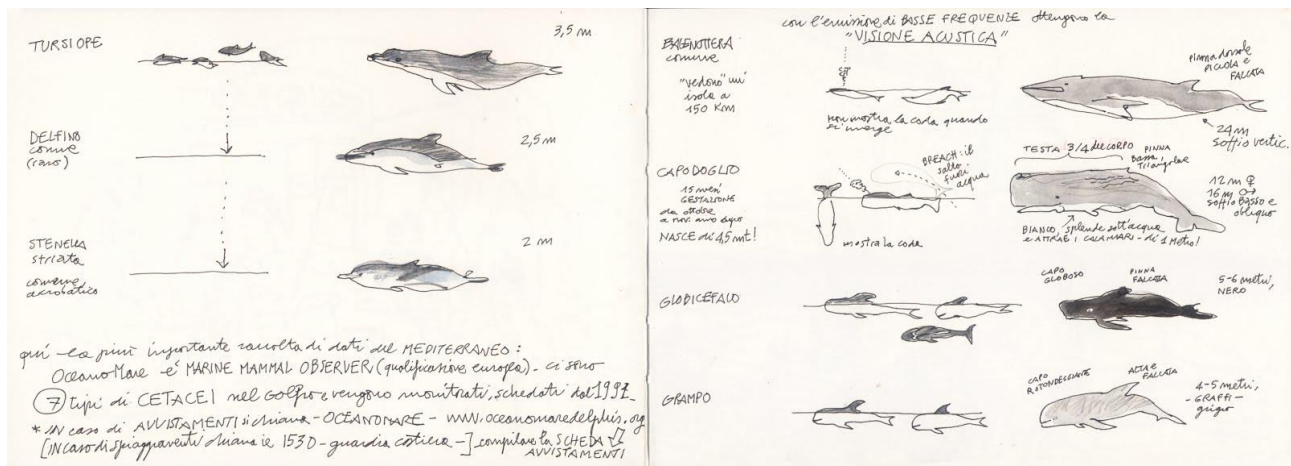 TURSIOPE
3,5 m
DELFINO
comune
(raro)
2,5 m
STENELLA
striata
comune
acrobatico
2 m
qui la più importante raccolta di dati del MEDITERRANEO:
OceanoMare è MARINE MAMMAL OBSERVER (qualificazione europea). ci sono
7 tipi di CETACEI nel Golfo e vengono monitorati, schedati dal 1991
* IN caso di AVVISTAMENTI si chiama - OCEANOMARE - www.oceanomaredelphis.org
[IN caso di spiaggiamenti chiamare 1530 - guardia costiera -] compilare la SCHEDA
AVVISTAMENTI
con l'emissione di BASSE FREQUENZE ottengono la
"VISIONE ACUSTICA"
BALENOTTERA
comune
"vedono" un'
isola a
150 Km
non mostra la coda quando
si immerge
PINNA dorsale
PICCOLA e
FALCATA
24 m
soffio vertic.
CAPODOGLIO
15 mesi
GESTAZIONE
da ottobre
a nov. anno dopo
NASCE di 4,5 mt!
BREACH: il
salto
fuori
acqua
mostra la coda
TESTA 3/4 del CORPO
PINNA
Bassa,
triangolare
12 m ♀
16 m ♂
soffio Basso e
obliquo
BIANCO, splende sott'acqua
e ATTRAE i CALAMARI - di 1 Metro!
GLOBICEFALO
CAPO
GLOBOSO
PINNA
FALCATA
5-6 metri,
NERO
GRAMPO
CAPO
ROTONDEGGIANTE
ALTA e
FALCATA
4-5 metri,
- GRAFFI -
grigio